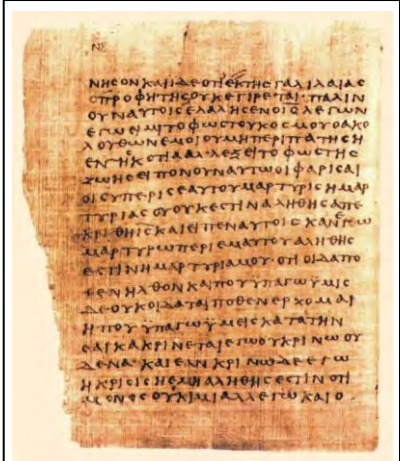 ΝΗϹΟΝΚΑΙΙΔΕΟΤΙΕΚΤΗϹΓΑΛΙΛΑΙΑϹ
ΟΠΡΟΦΗΤΗϹΟΥΚΕΓΙΡΕΤΑΙ· ΠΑΛΙΝ
ΟΥΝΑΥΤΟΙϹΕΛΑΛΗϹΕΝΟΙϹΛΕΓΩΝ
ΕΓΩΕΙΜΙΤΟΦΩϹΤΟΥΚΟϹΜΟΥΟΑΚΟ
ΛΟΥΘΩΝΕΜΟΙΟΥΜΗΠΕΡΙΠΑΤΗϹΗ
ΕΝΤΗϹΚΟΤΙΑΑΛΛΕΞΕΙΤΟΦΩϹΤΗϹ
ΖΩΗϹΕΙΠΟΝΟΥΝΑΥΤΩΟΙΦΑΡΙϹΑΙ
ΟΙϹΥΠΕΡΙϹΕΑΥΤΟΥΜΑΡΤΥΡΙϹΗΜΑΡ
ΤΥΡΙΑϹΟΥΟΥΚΕϹΤΙΝΑΛΗΘΗϹΑΠΕ
ΚΡΙΘΗΙϹΚΑΙΕΙΠΕΝΑΥΤΟΙϹΚΑΝΕΓΩ
ΜΑΡΤΥΡΩΠΕΡΙΕΜΑΥΤΟΥΑΛΗΘΗϹ
ΕϹΤΙΝΗΜΑΡΤΥΡΙΑΜΟΥ·ΟΤΙΟΙΔΑΠΟ
ΘΕΝΗΛΘΟΝΚΑΙΠΟΥΫΠΑΓΩΫΜΙϹ
ΔΕΟΥΚΟΙΔΑΤΑΙΠΟΘΕΝΕΡΧΟΜΑΙ
ΗΠΟΥΫΠΑΓΩΫΜΕΙϹΚΑΤΑΤΗΝ
ϹΑΡΚΑΚΡΙΝΕΤΑΙΕΓΩΟΥΚΡΙΝΩΟΥ
ΔΕΝΑ·ΚΑΙΕΑΝΚΡΙΝΩΔΕΕΓΩ
ΗΚΡΙϹΙϹΗΕΜΗΑΛΗΘΗϹΕϹΤΙΝΟΤΙ
ΜΟΝΟϹΟΥΚΙΜΙΑΛΛΕΓΩΚΑΙΟ